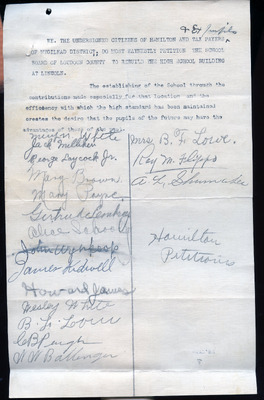 WE, THE UNDERSIGNED CITIZENS OF HAMILTON AND TAX PAYERS
OF MT.GILEAD DISTRICT, DO MOST EARNESTLY PETITION THE SCHOOL
BOARD OF LOUDOUN COUNTY TO REBUILD THE HIGH SCHOOL BUILDING
AT LINCOLN.
The establishing of the School through the
contributions made especially for that location and the
efficiency with which the high standard has been maintained
creates the desire that the pupils of the future may have the
advantages of those of the past.
White
Jack Milliken
George Laycock Jr.
Mary Brown
Mary Payne
Gertrude
Alice
John
James Kidwell
Howard James
Wesley White
B. F. Lowe
C B Pugh
Ballenger
Mrs B. F. Lowe.
Kay M. Filipps
A. L.
Hamilton
Petitions